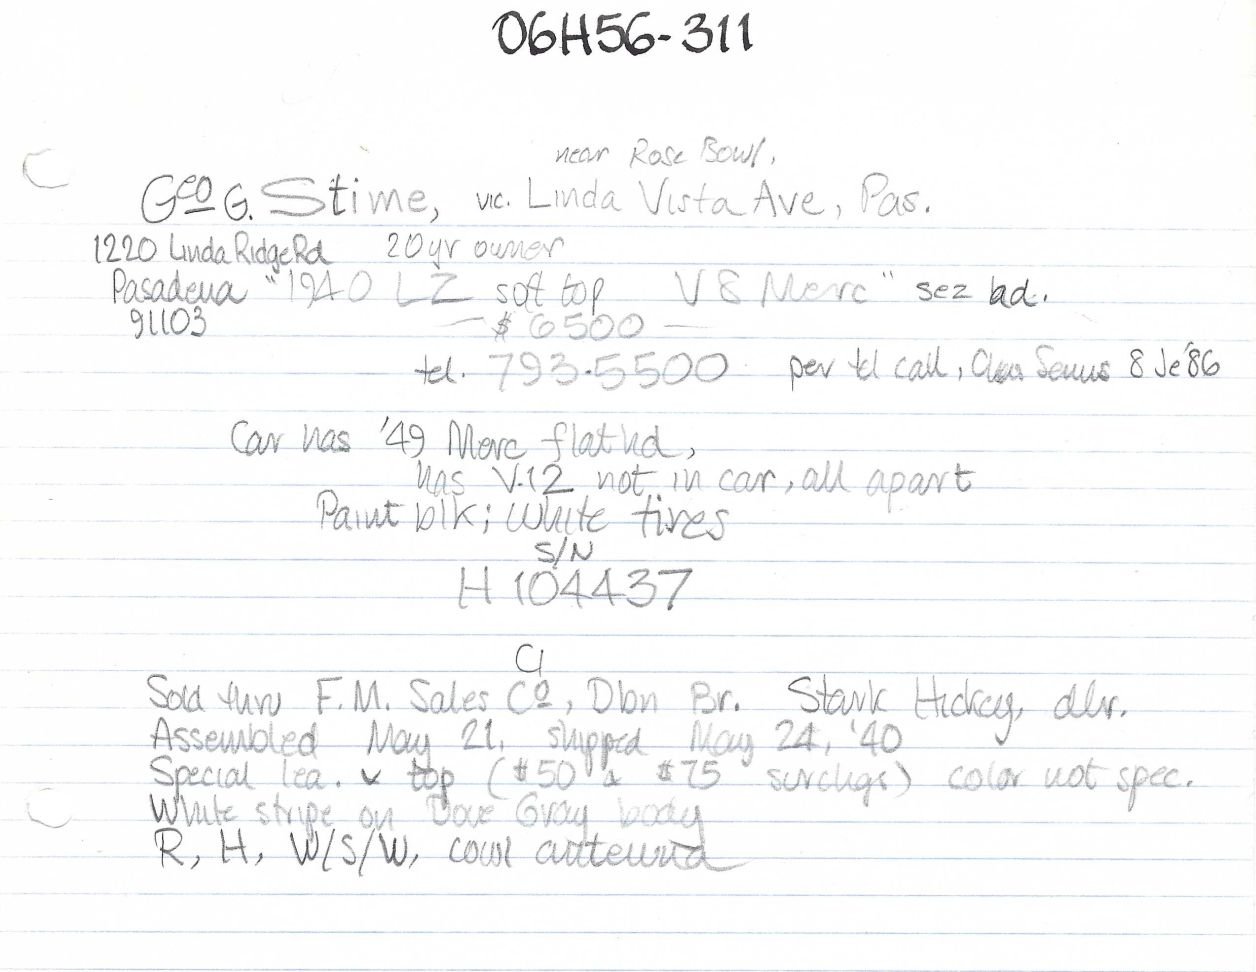 06H56-311
near Rose Bowl,
Geo G. Stime, vic. Linda Vista Ave, Pas.
1220 Linda Ridge Rd 20 yr owner
Pasadena "1940 LZ soft top V8 Merc" sez ad.
91103 — $6500 —
tel. 793-5500 per tel call, 8 Je '86
Car has '49 Merc flathd,
has V-12 not in car, all apart
Paint blk; White tires
S/N
H 104437
Sold thru F.M. Sales Co, Dbn Br. Stark Hickey, dlr.
Assembled May 21, shipped May 24, '40
Special lea. & top ($50 & $75 surchgs) color not spec.
White stripe on Dove Gray body
R, H, W/S/W, cowl antenna